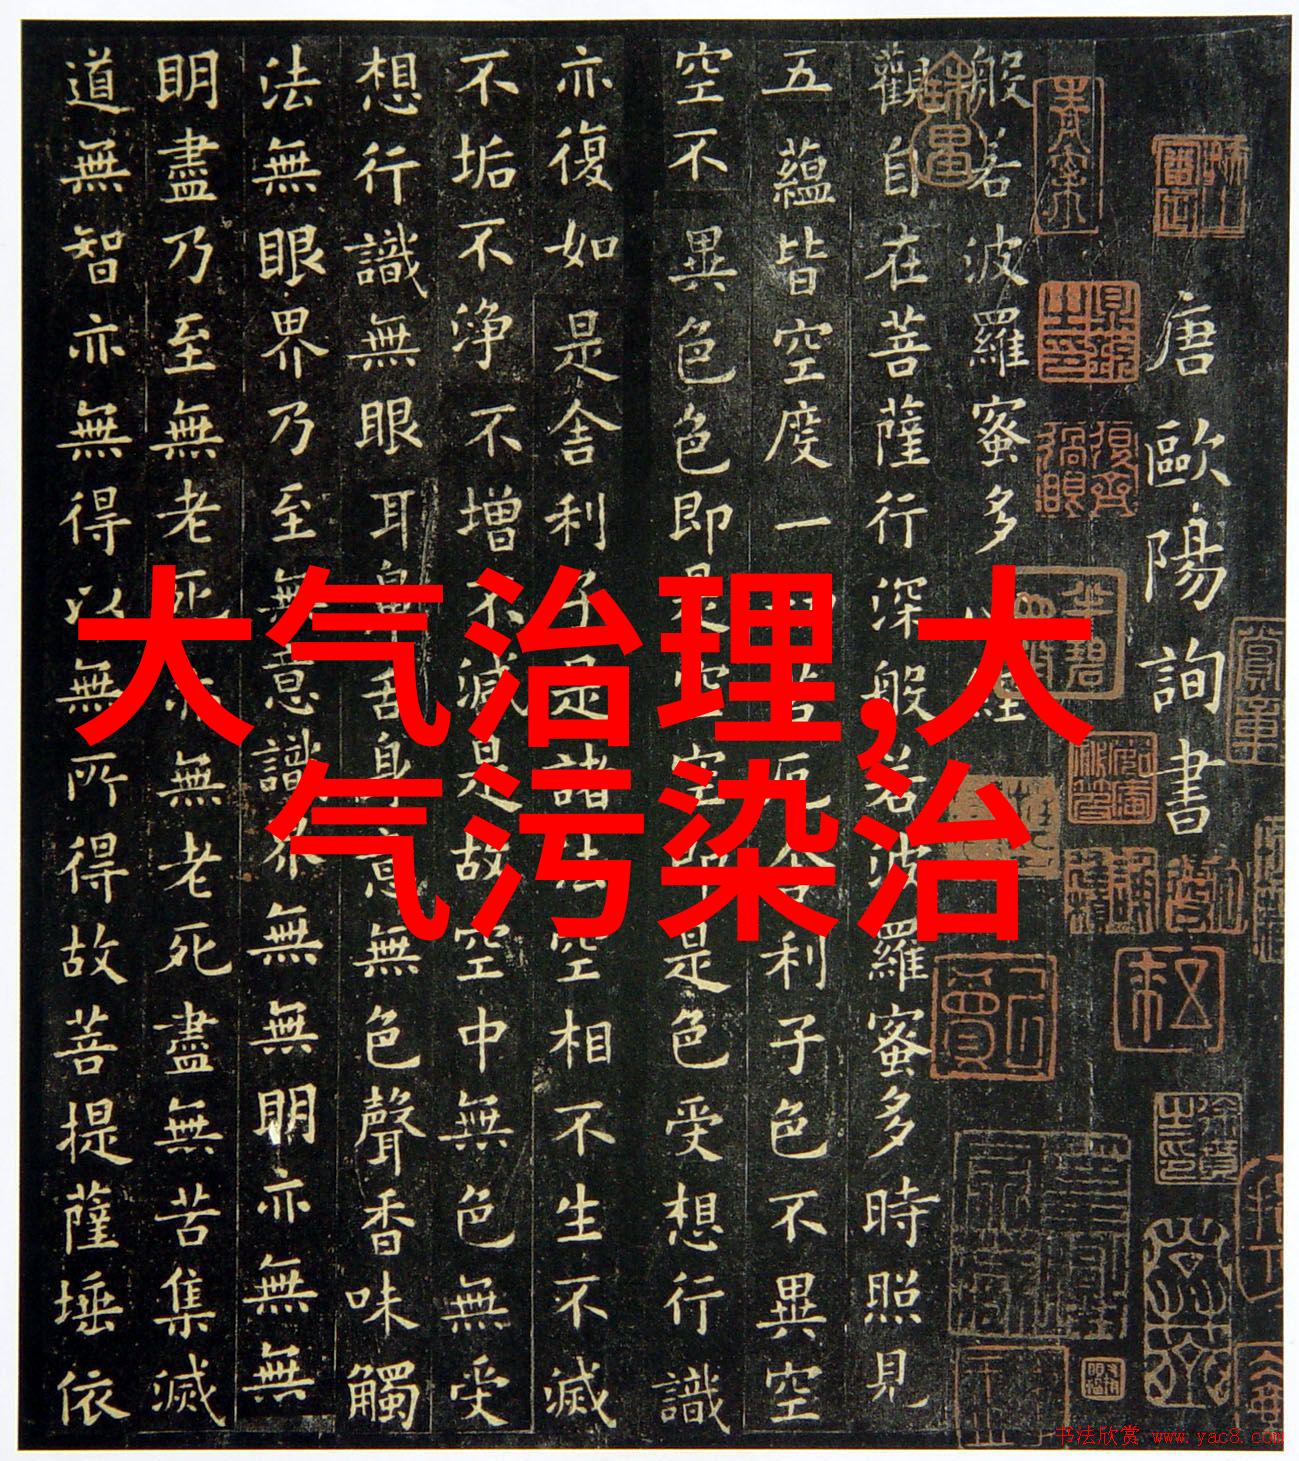 唐歐陽詢書
般若波羅蜜多心經
觀自在菩薩行深般若波羅蜜多時照見
五蘊皆空度一切苦厄舍利子色不異空
空不異色色即是空空即是色受想行識
亦復如是舍利子是諸法空相不生不滅
不垢不净不增不減是故空中無色無受
想行識無眼耳鼻舌身意無色聲香味觸
法無眼界乃至無意識界無無明亦無無
明盡乃至無老死亦無老死盡無苦集滅
道無智亦無得以無所得故菩提薩埵依
大气治理,大
气污染治
书法欣赏 www.yac8.com